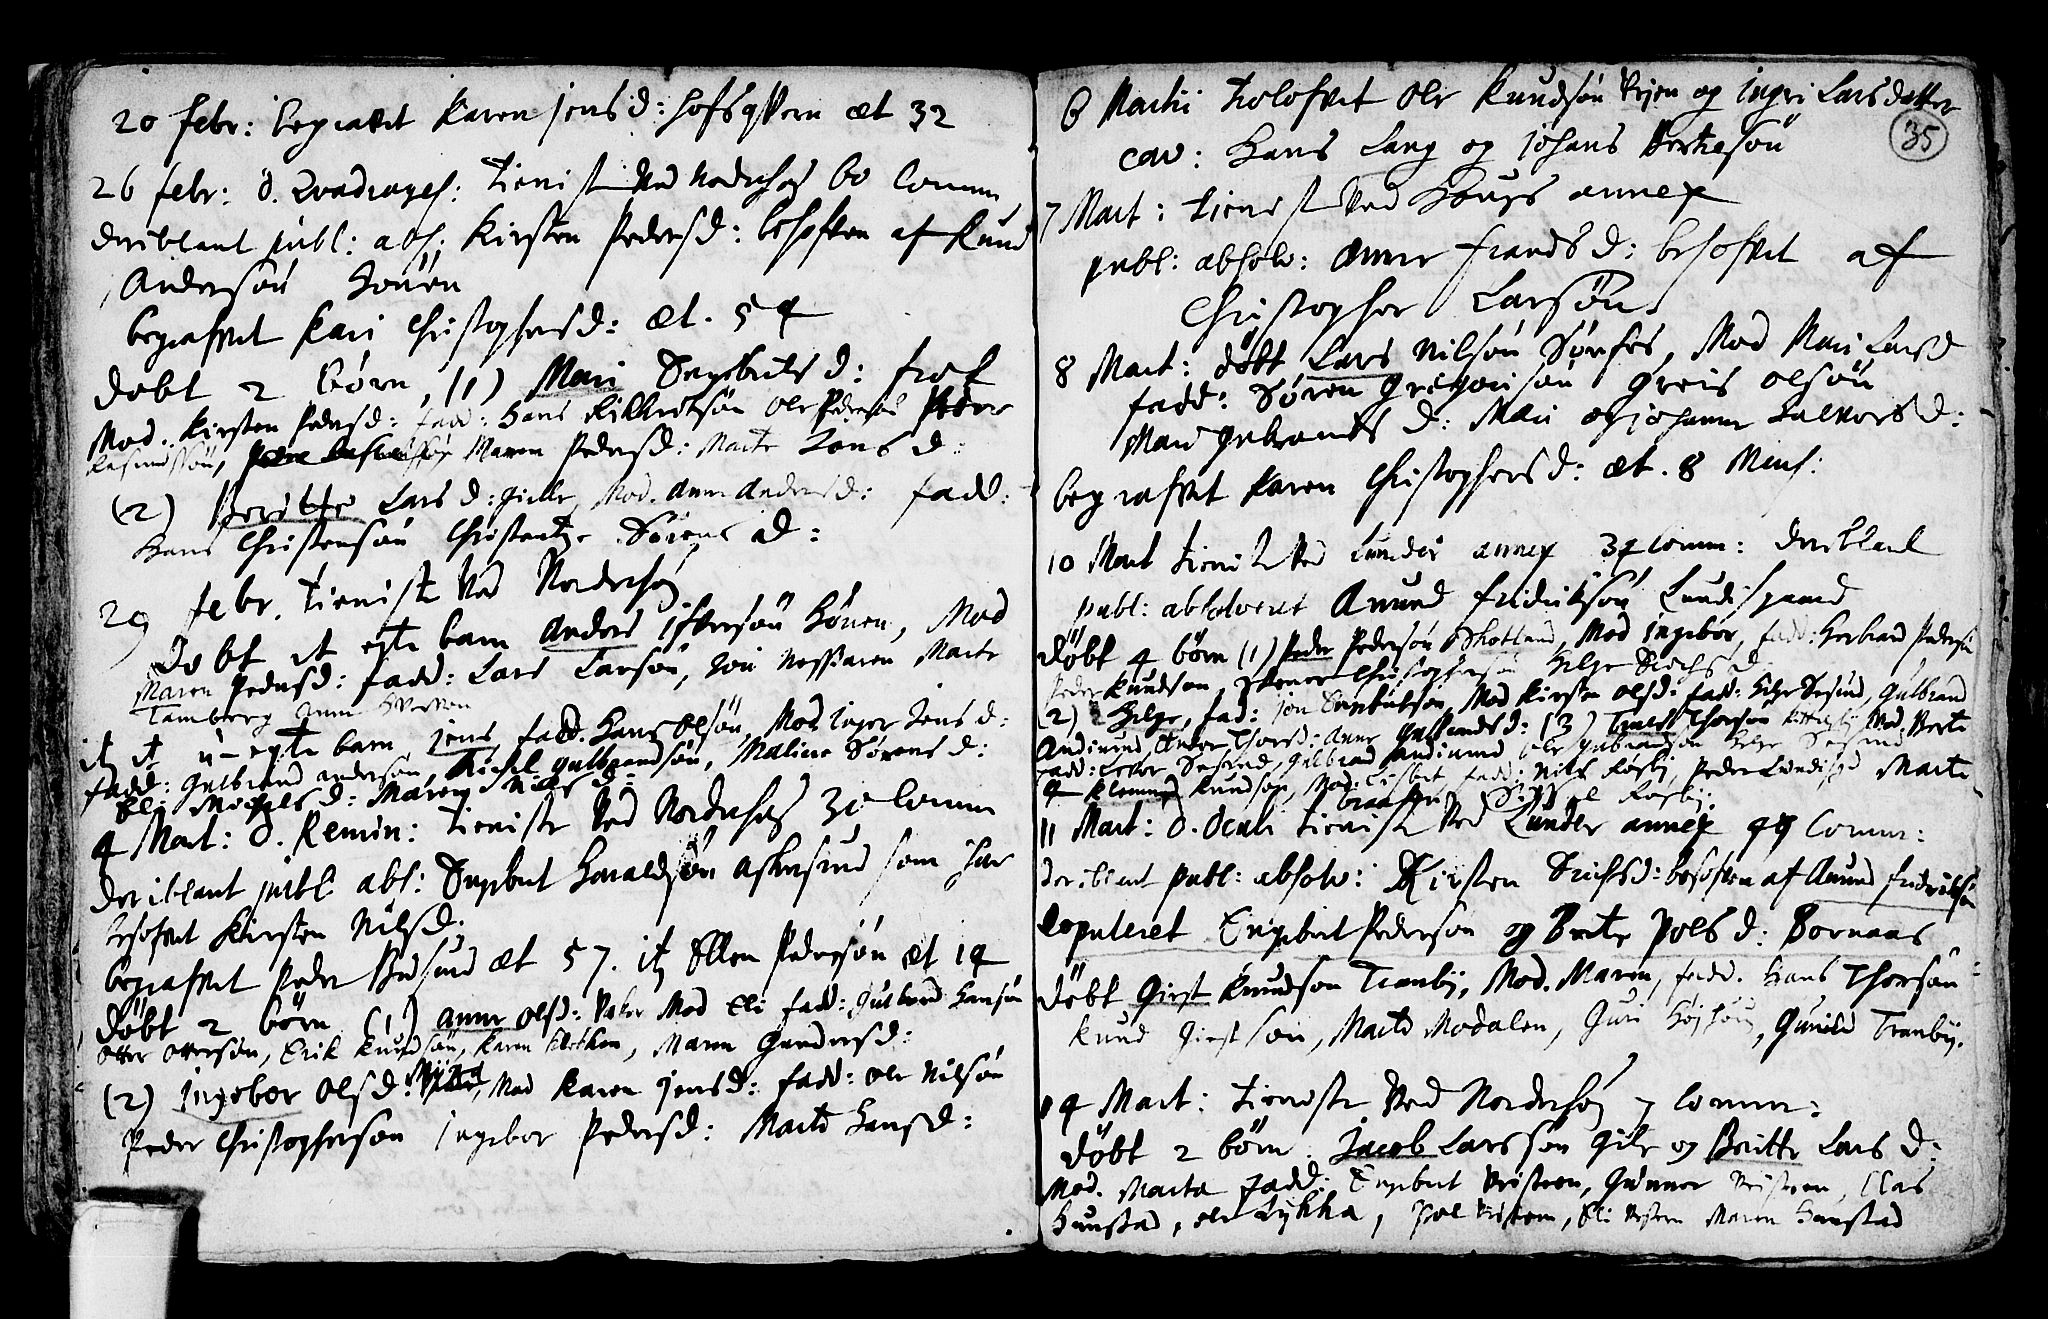 20 febr: begravet Karen jens d: hofsqvern æt 32
26 febr: D. Qvadrages: tienist ved Nordrhoj 60 Comm
deriblant publ: abs: Kirsten Peders d: besofven af Knud
Andersøn Hönen
begrafvet Kari Christophersd: æt. 54
døbt 2 børn, (1) Mari Engebrets d: frof
Mod. Kirsten Pedersd: fadd: Hans Ole Pedersøn Peder
Rasmussøn, Maren Pedersd: Marte Jens d:
(2) Beritte Lars d: Gille, Mod. Anne Andersd: fadd:
Hans Christensøn Christentze Sørens d:
29 febr. tieniste ved Nordrhoj
døbt it egte barn Anders ifversøn Hönen, Mod
Maren Pedersd: fadd: Lars Larsøn, Jon Marte
Tamberg Anne
it it u-egte barn, jens, fadd. Hans Olsøn, Mod inger Jens d:
fadd: Gulbrand andersøn, Michel gulbrandsøn, Maline Sørens d:
Eli Michels d: Maren Nils d:
4 Mart: D. Remin: tieniste ved Nordrhoj 30 Comm
deriblant publ abs: Engebret Haraldsøn Askersrud som har
besofvet Kirsten Nilsd:
begrafvet Peder Busund æt 57. it Ellen Pedersøn æt 14
døbt 2 børn (1) anne Olsd: Vaker Mod Eli fadd: Gulbrand Hansøn
Otter Ottersøn, Erik Knudsøn, Karen Klekken, Maren Gundersd:
(2) ingebor Olsd: Mod Karen jensd: fadd: Ole Nilsøn
Peder Christophersøn ingebor Pedersd: Marte Hansd:
35
6 Martii trolofvet Ole Knudsøn Vejen og ingri Larsdatter
cav: Hans Lang og johans
7 Mart: tienist ved Hougs annex
publ: absolv: Anne frands d: besofvet af
Christopher Larsøn
8 Mart: døbt Lars Nilsøn Mod Mari Larsd
fadd: Søren Gregorisøn Greis Olsøn
Mari gulbrands d: Mari og johanne Halvors d:
begrafvet Karen Christophersd: æt. 8 Mens:
10 Mart tienist ved Lunder annex 34 Comm: deriblant
publ: absolveret Amund fridriksøn Lundesgaard
døbt 4 børn (1) Peder Pedersøn Skotland, Mod ingebor, fadd: Herbrand Pedersøn
Peder Knudsøn, Christophersøn Helge Erichs d:
(2) Helge, fad: jon Engebretsøn, Mod Kirsten Olsd: fadd: Helge Sesrud, Gulbrand
Andirud, Thorsd: Anne Gulbrandsd: (3) Troels Thorsøn Mod, Berte
fadd: Sesrud, Gulbrand andirud Ole gulbrandsøn Helge Sesrud
4 Klemmed Knudsøn, Mod: Lisbet, fadd: Nils Røsby, Peder Marte
Braaten Sidsel Røsby:
11 Mart: D. Oculi tieniste ved Lunder annex 49 Comm:
deriblant publ: absolv: Kirsten Erichsd: besofven af Amund fridriksøn
Copuleret Engebret Pedersøn og Berte Pols d: Bornaas
døbt Giest Knudsøn Tranby, Mod. Maren, fadd. Hans Thorsøn
Knud Giestsøn, Marte Modalen, Guri Gunild Tranby.
14 Mart: tieniste ved Nordrhoj 7 Comm:
døbt 2 børn. Jacob Larssøn Gile og Britte Lars d:
Mod. Marta fadd: Engebret Veisteen, Gunner Veisteen, Clas
Hunstad, Ole Lykka, Pol Veisteen, Eli Veisteen Maren Hunstad